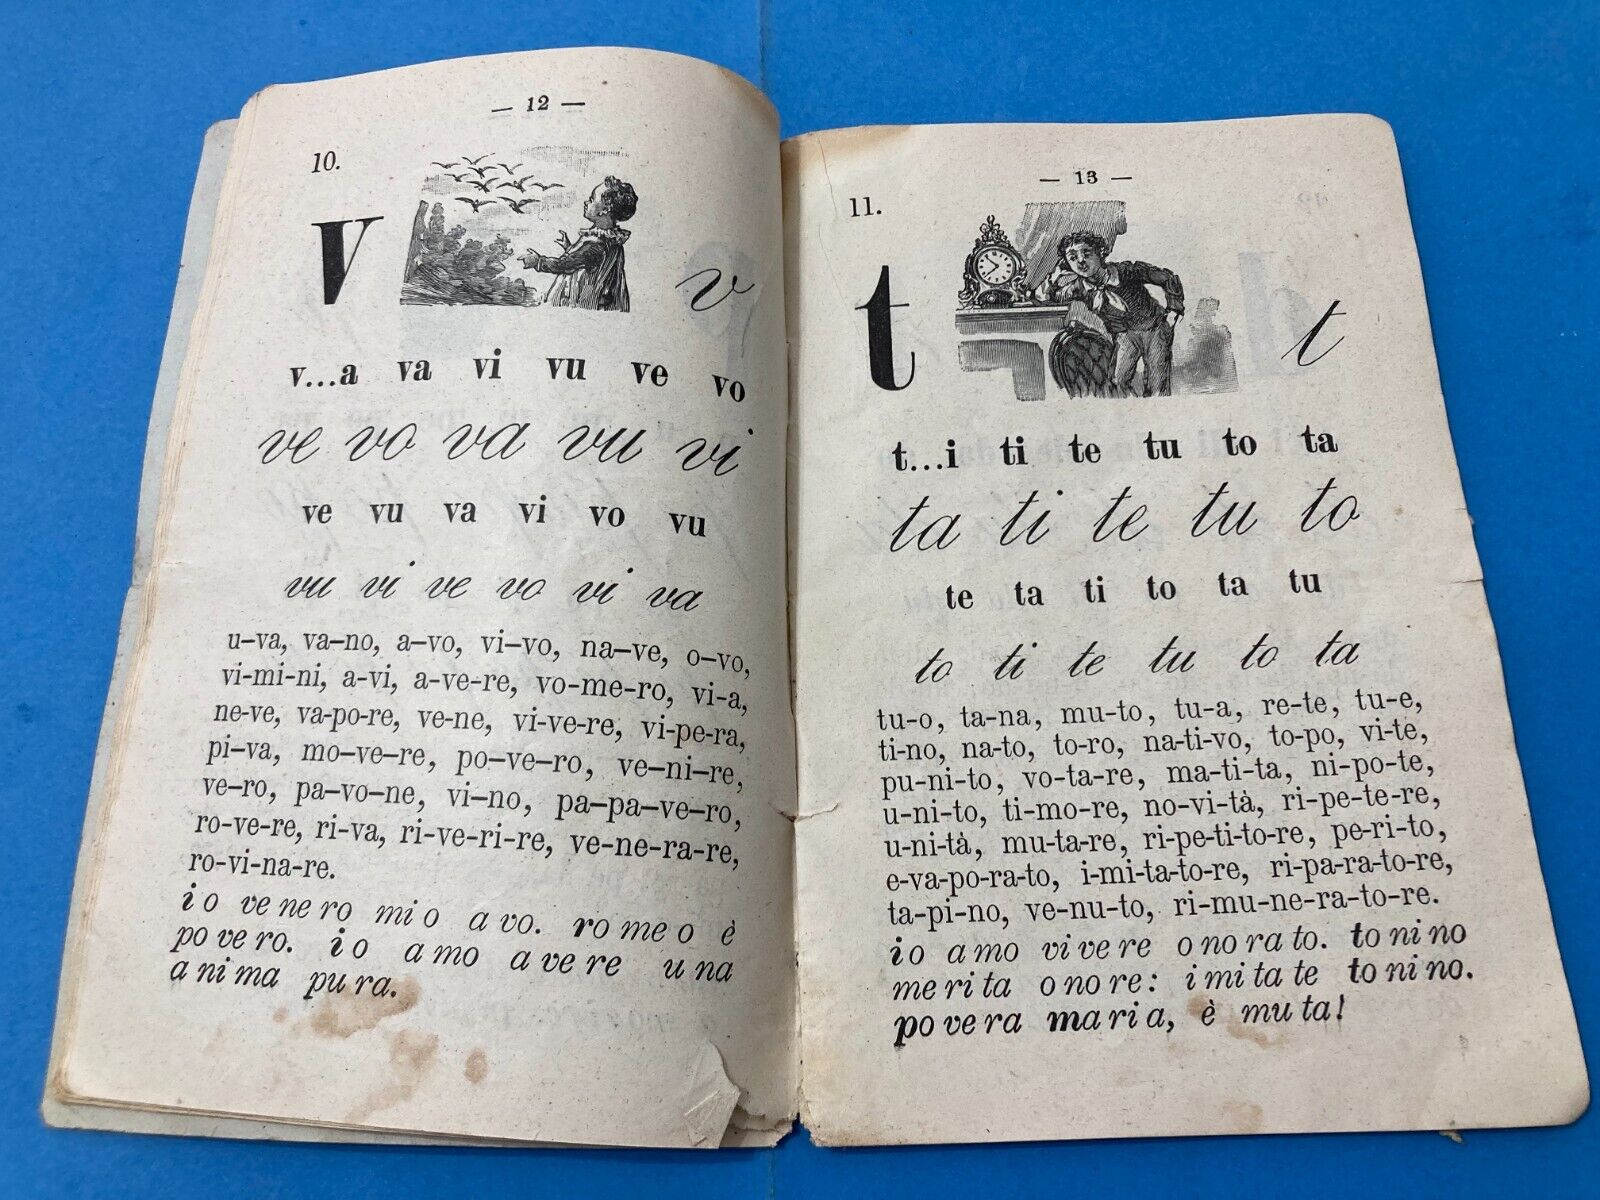 — 12 —
10.
v v
v...a va vi vu ve vo
ve vo va vu vi
ve vu va vi vo vu
vu vi ve vo vi va
u-va, va-no, a-vo, vi-vo, na-ve, o-vo,
vi-mi-ni, a-vi, a-ve-re, vo-me-ro, vi-a,
ne-ve, va-po-re, ve-ne, vi-ve-re, vi-pe-ra,
pi-va, mo-ve-re, po-ve-ro, ve-ni-re,
ve-ro, pa-vo-ne, vi-no, pa-pa-ve-ro,
ro-ve-re, ri-va, ri-ve-ri-re, ve-ne-ra-re,
ro-vi-na-re.
io venero mio avo. romeo è
povero. io amo avere una
anima pura.
— 13 —
11.
t t
t...i ti te tu to ta
ta ti te tu to
te ta ti to ta tu
to ti te tu to ta
tu-o, ta-na, mu-to, tu-a, re-te, tu-e,
ti-no, na-to, to-ro, na-ti-vo, to-po, vi-te,
pu-ni-to, vo-ta-re, ma-ti-ta, ni-po-te,
u-ni-to, ti-mo-re, no-vi-tà, ri-pe-te-re,
u-ni-tà, mu-ta-re, ri-pe-ti-to-re, pe-ri-to,
e-va-po-ra-to, i-mi-ta-to-re, ri-pa-ra-to-re,
ta-pi-no, ve-nu-to, ri-mu-ne-ra-to-re.
io amo vivere onorato. tonino
merita onore: imitate tonino.
povera maria, è muta!